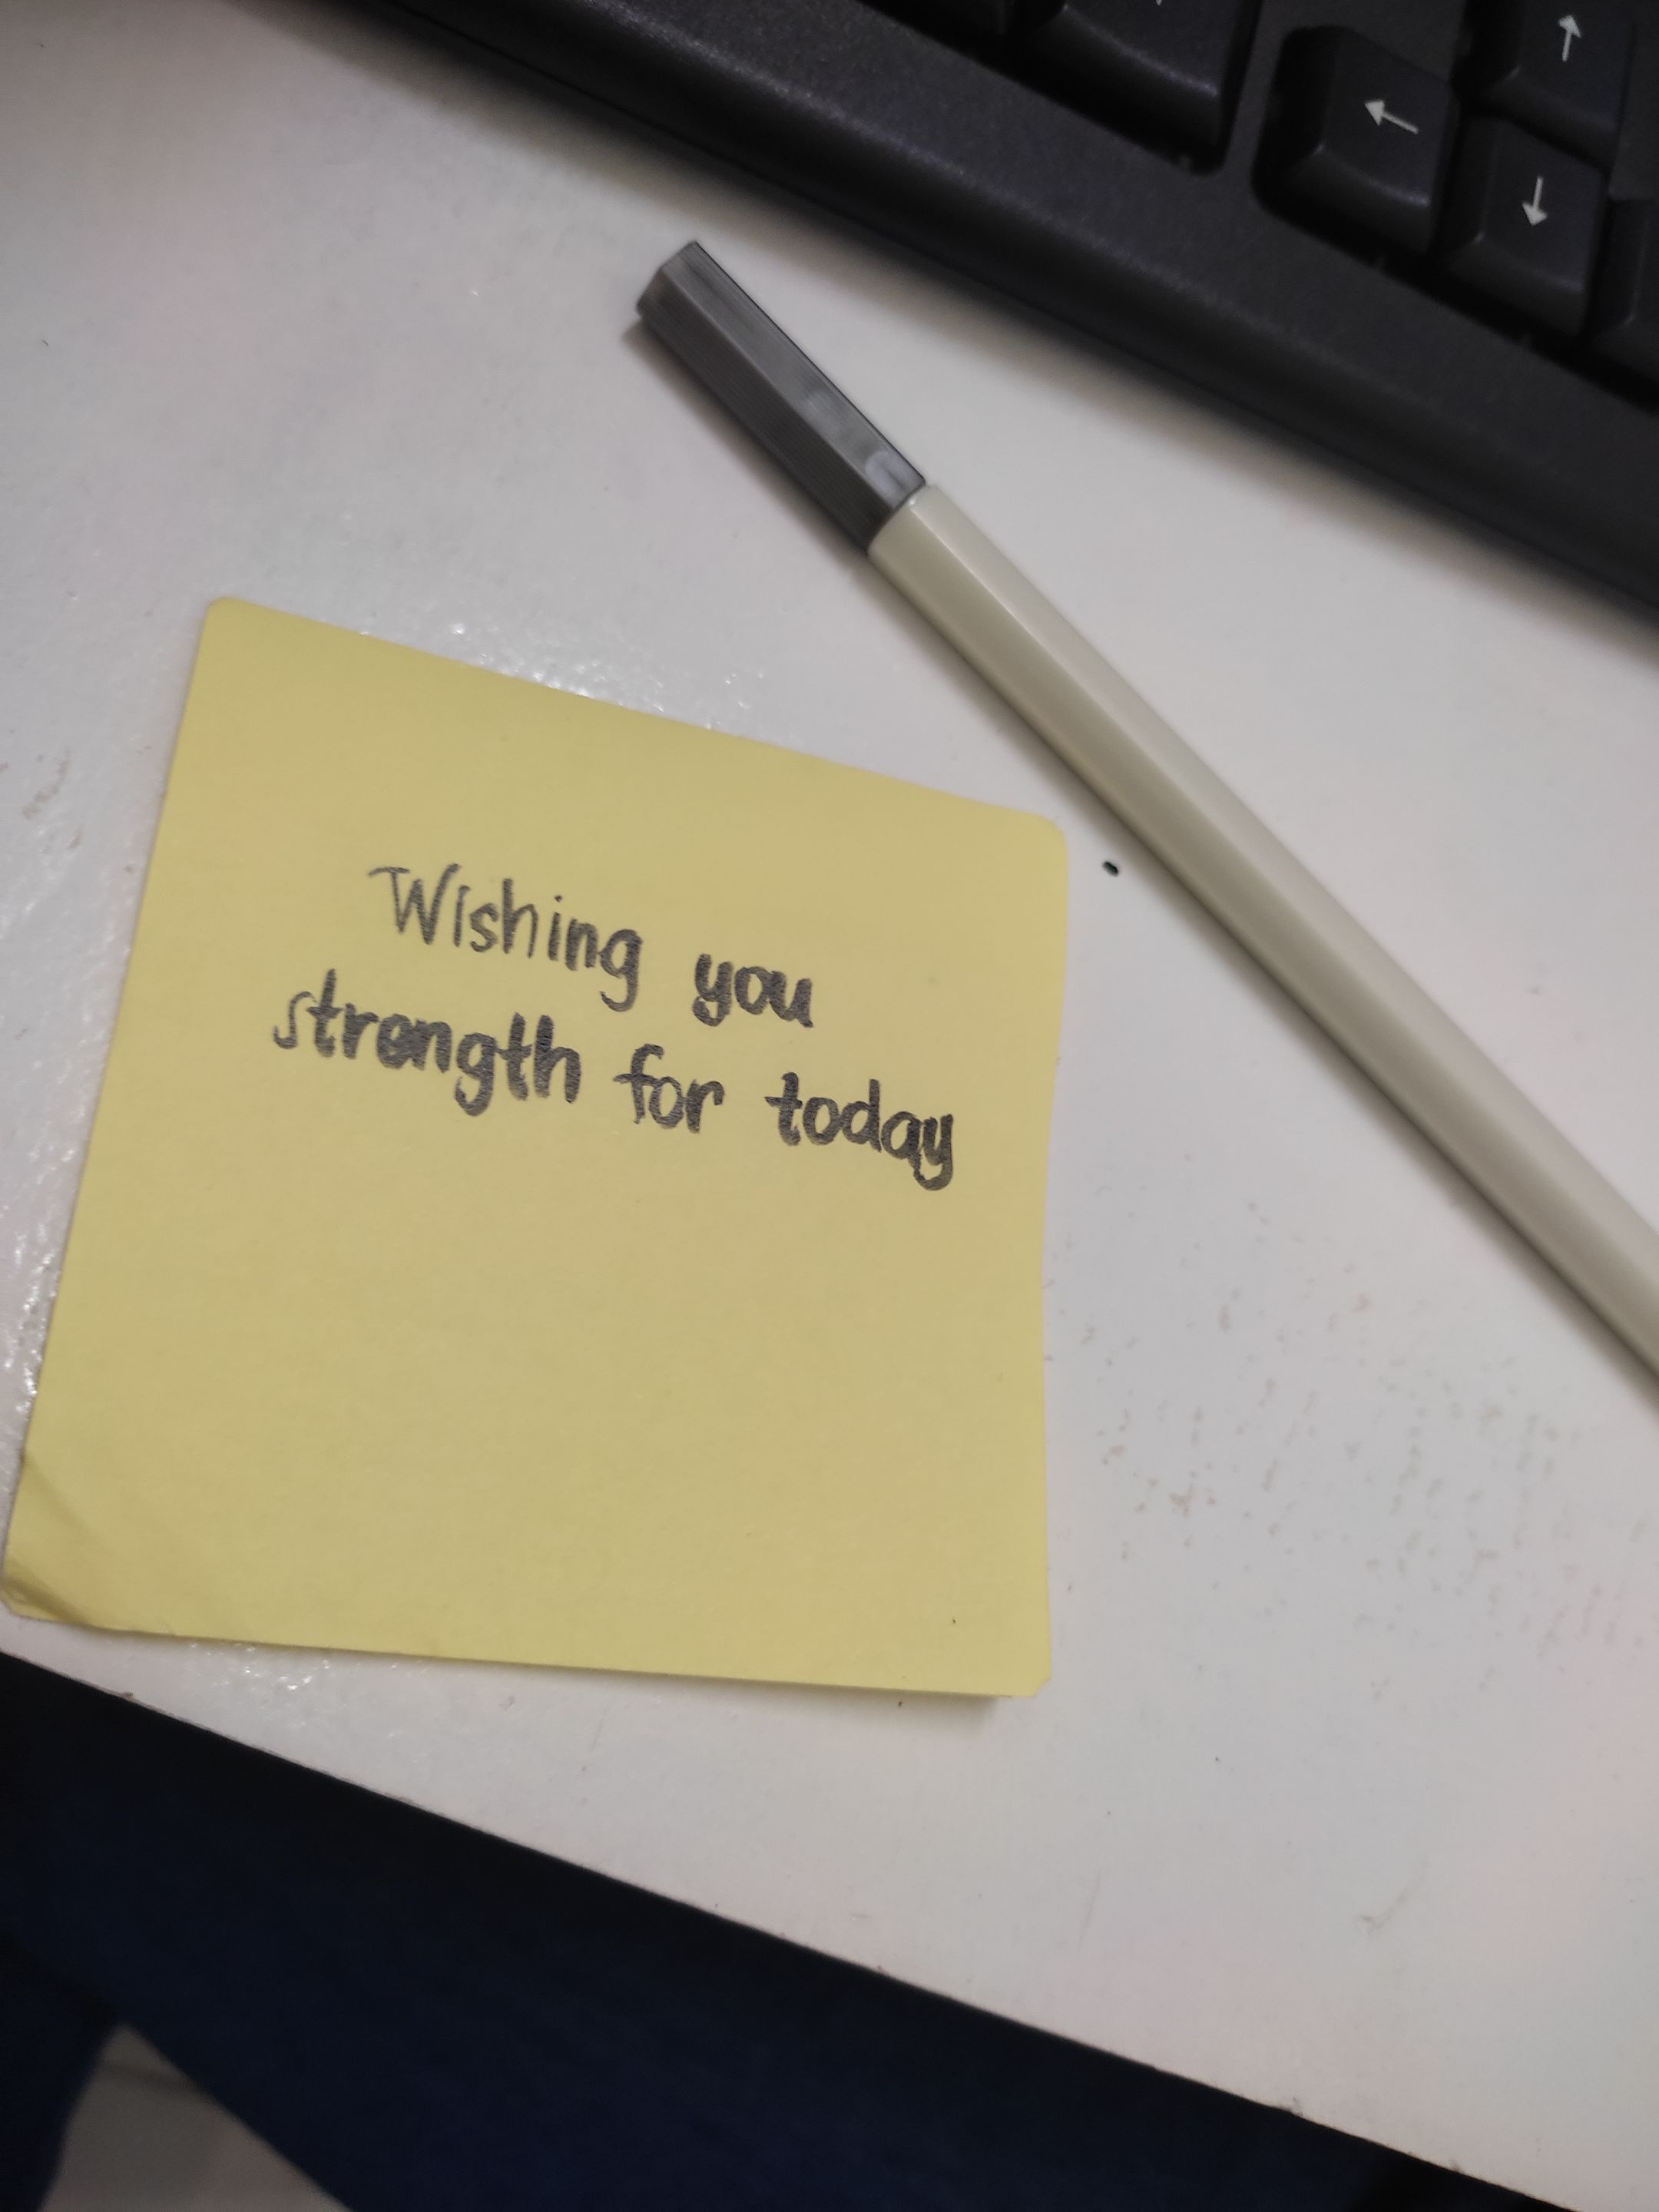 Wishing you
strength for today